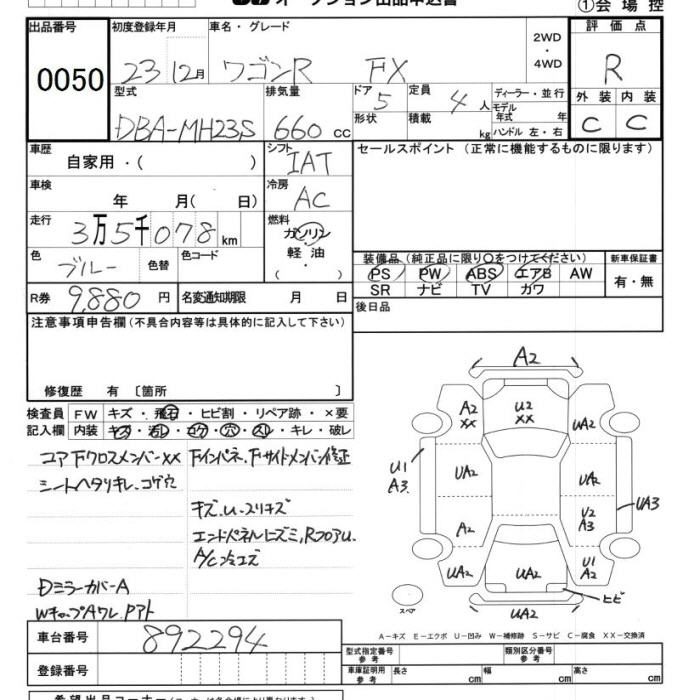 オークション出品申込書
①会場控
出品番号 初度登録年月 車名・グレード 2WD・4WD 評価点
0050 23 12月 ワゴンR FX R
型式 排気量 ドア 5 定員 4人 ディーラー・並行 外装 内装
DBA-MH23S 660cc 形状 積載 kg モデル年式 年 ハンドル 左・右 C C
車歴 自家用・( ) シフト IAT セールスポイント (正常に機能するものに限ります)
車検 年 月( 日) 冷房 AC
走行 3万5千078km 燃料 ガソリン・軽油 ( )
色 ブルー 色替 色コード 装備品 (純正品に限り○をつけてください) 新車保証書
PS PW ABS エアB AW 有・無
SR ナビ TV カワ
R券 9,880円 名変通知期限 月 日 後日品
注意事項申告欄 (不具合内容等は具体的に記入して下さい)
修復歴 有 〔箇所 〕
検査員 FW キズ・飛石・ヒビ割・リペア跡・×要
記入欄 内装 キズ・汚レ・コゲ・穴・スレ・キレ・破レ
コアFクロスメンバーXX Fインパネ、Fサイドメンバー修正
シートヘタリキレ、コゲ穴
キズ、U、スリキズ
エンドパネルヒズミ、RフロアU、
A/C冷エズ
Dミラーカバー A
WキャップAワレ、Pアト
A2
A2 XX U2 XX UA2
U1 A3 UA2 UA2
A2 U2 A3 UA3
UA2 UA2 U1 A2
スペア ヒビ
UA2
A-キズ E-エクボ U-凹み W-補修跡 S-サビ C-腐食 XX-交換済
車台番号 892294
型式指定番号 参考 類別区分番号 参考
登録番号 車庫証明用 参考 長さ cm 幅 cm 高さ cm
希望出品コーナー